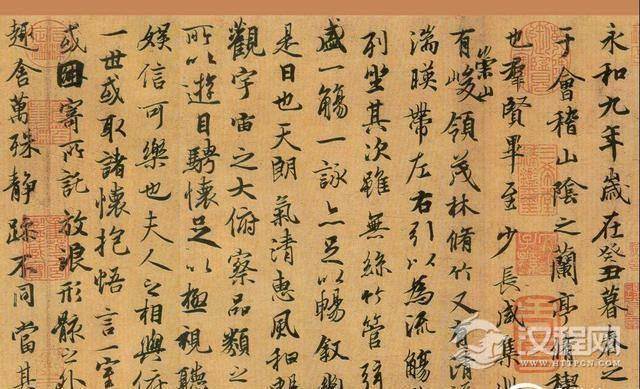 永和九年歲在癸丑暮春之
于會稽山陰之蘭亭脩禊
也羣賢畢至少長咸集
有崇山峻領茂林脩竹又有清
湍暎帶左右引以為流觴
列坐其次雖無絲竹管弦
盛一觴一詠亦足以暢敘
是日也天朗氣清惠風和暢
觀宇宙之大俯察品類之
所以遊目騁懷足以極視聽
娛信可樂也夫人之相與俯
一世或取諸懷抱悟言一室
或因寄所託放浪形骸之外
趣舍萬殊靜躁不同當其
汉程网
HTTPCN.COM